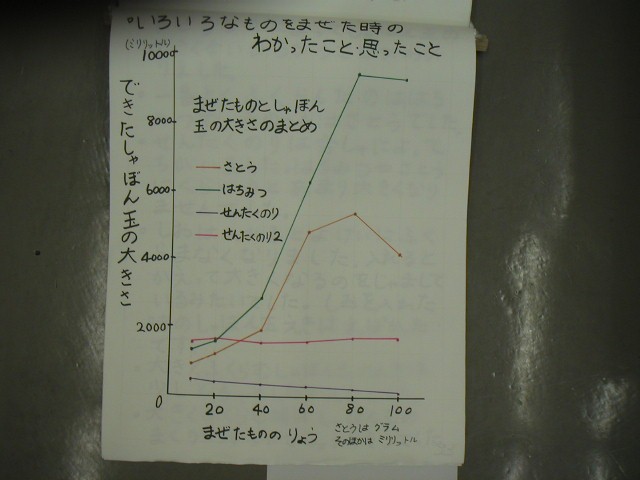 ○いろいろなものをまぜた時の
わかったこと・思ったこと
(ミリリットル)
10000
8000
6000
4000
2000
0
できたしゃぼん玉の大きさ
まぜたものとしゃぼん
玉の大きさのまとめ
さとう
はちみつ
せんたくのり
せんたくのり2
20 40 60 80 100
まぜたもののりょう
さとうは グラム
そのほかは ミリリットル